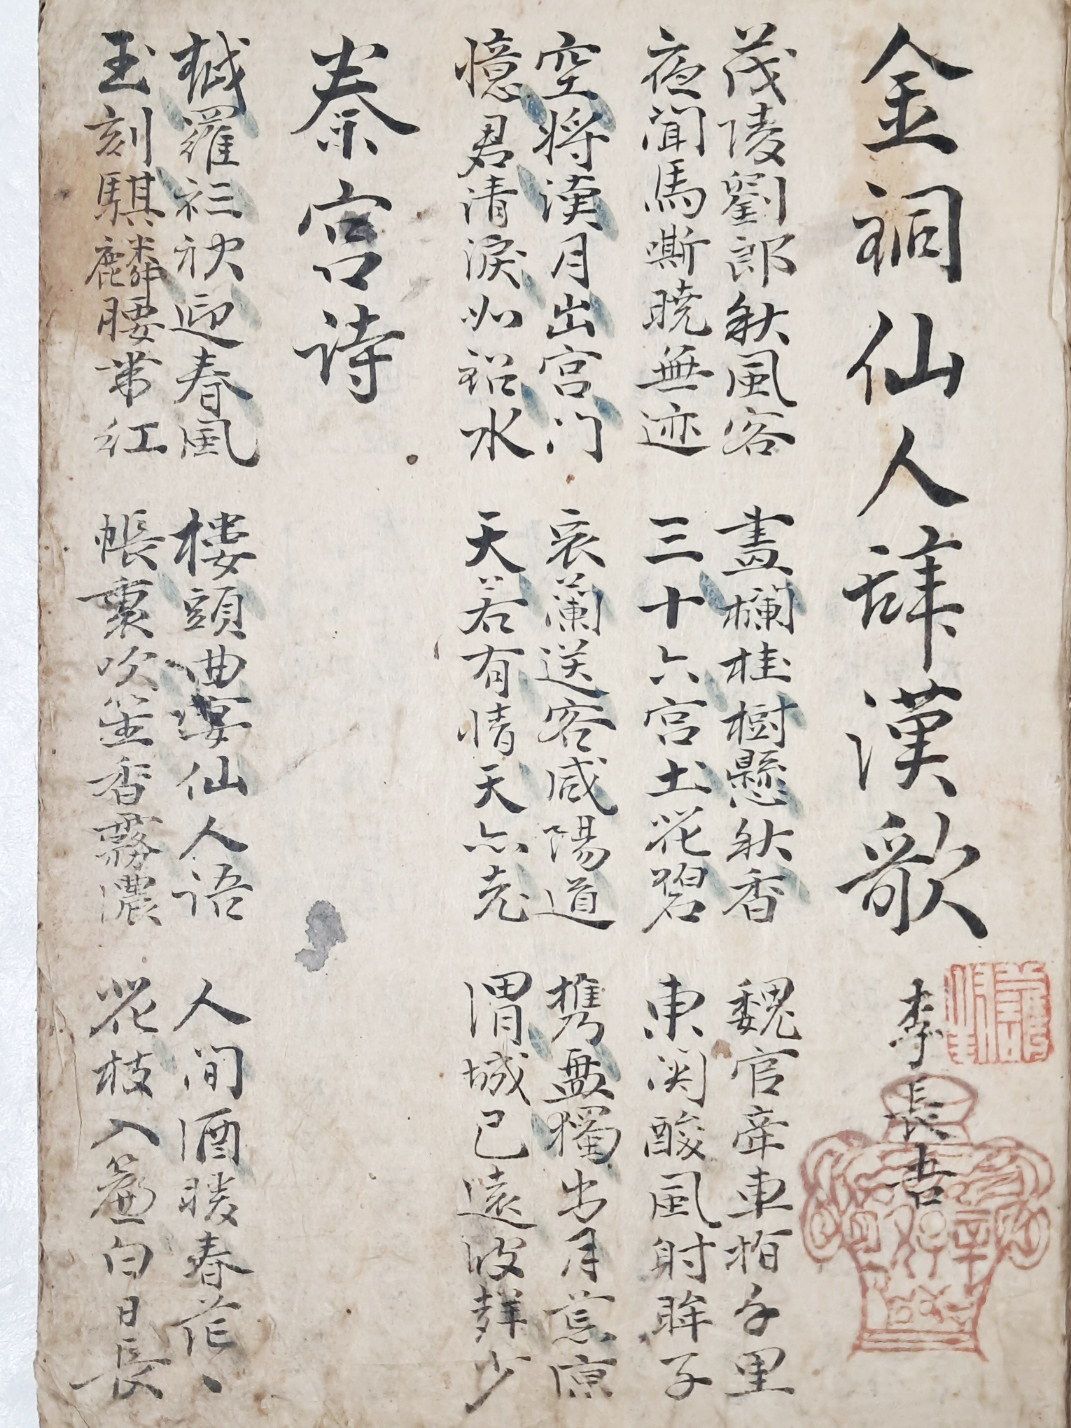 金銅仙人辞漢歌
李長吉
茂陵劉郎秋風客 畫欄桂樹懸秋香 魏官牽車指千里
夜聞馬嘶曉無迹 三十六宮土花碧 東関酸風射眸子
空将漢月出宮门 衰蘭送客咸陽道 携盤獨出月荒凉
憶君清淚如鉛水 天若有情天亦老 渭城已遠波聲少
秦宮诗
越羅衫袂迎春風 樓頭曲宴仙人語 人间酒暖春茫、
玉刻騏麟腰帶紅 帳裏吹笙香霧濃 花枝入簾白日長